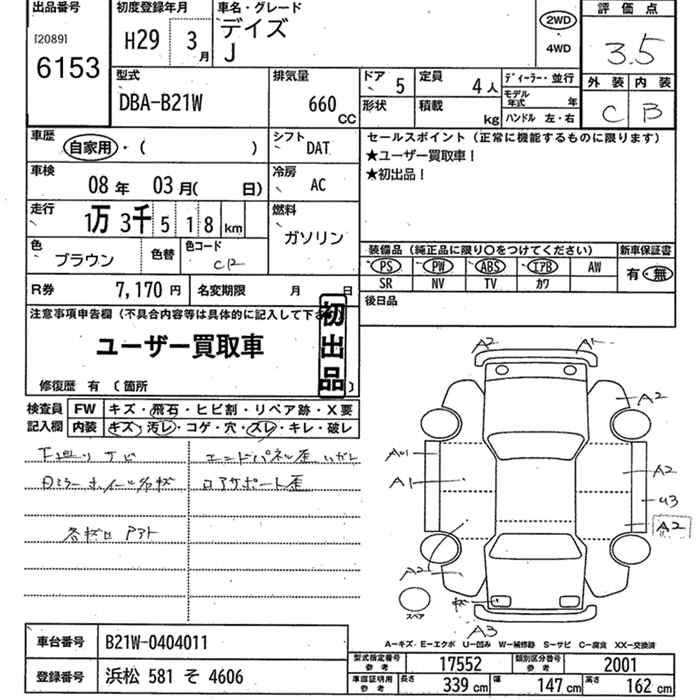 出品番号
[2089]
6153
初度登録年月
H29 3月
車名・グレード
デイズ
J
2WD
4WD
評価点
3.5
外装 内装
C B
型式
DBA-B21W
排気量
660 CC
ドア 5
定員 4人
ディーラー・並行
形状
積載 kg
モデル年式 年
ハンドル 左・右
車歴
自家用・( )
シフト
DAT
セールスポイント(正常に機能するものに限ります)
★ユーザー買取車！
★初出品！
車検
08年 03月( 日)
冷房
AC
走行
1万3千518km
燃料
ガソリン
色
ブラウン
色替
色コード
装備品(純正品に限り〇をつけてください)
新車保証書
PS PW ABS エアB AW
有・無
SR NV TV カワ
R券 7,170円
名変期限 月 日
後日品
注意事項申告欄(不具合内容等は具体的に記入して下さ
ユーザー買取車
初出品
修復歴 有〔箇所 〕
検査員記入欄
FW キズ・飛石・ヒビ割・リペア跡・X要
内装 キズ・汚レ・コゲ・穴・スレ・キレ・破レ
A2 A1
A2
A1
A2
U3
A2
A2
A3
スペア
A－キズ E－エクボ U－凹み W－補修跡 S－サビ C－腐食 XX－交換済
車台番号 B21W-0404011
登録番号 浜松 581 そ 4606
型式指定番号参考 17552
類別区分番号参考 2001
車庫証明用参考 長さ 339cm 幅 147cm 高さ 162cm